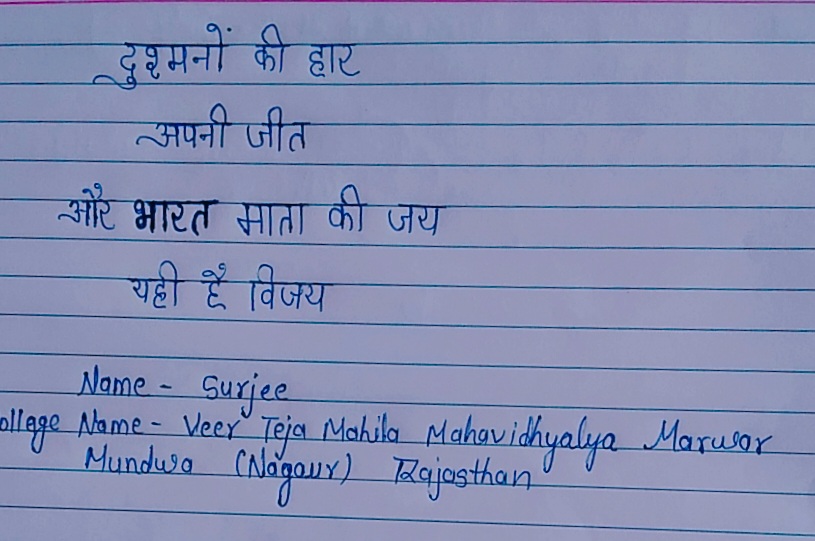 दुश्मनों की हार
अपनी जीत
और भारत माता की जय
यही है विजय
Name - Surjee
ollege Name - Veer Teja Mahila Mahavidhyalya Marwar
Mundwa (Nagaur) Rajasthan